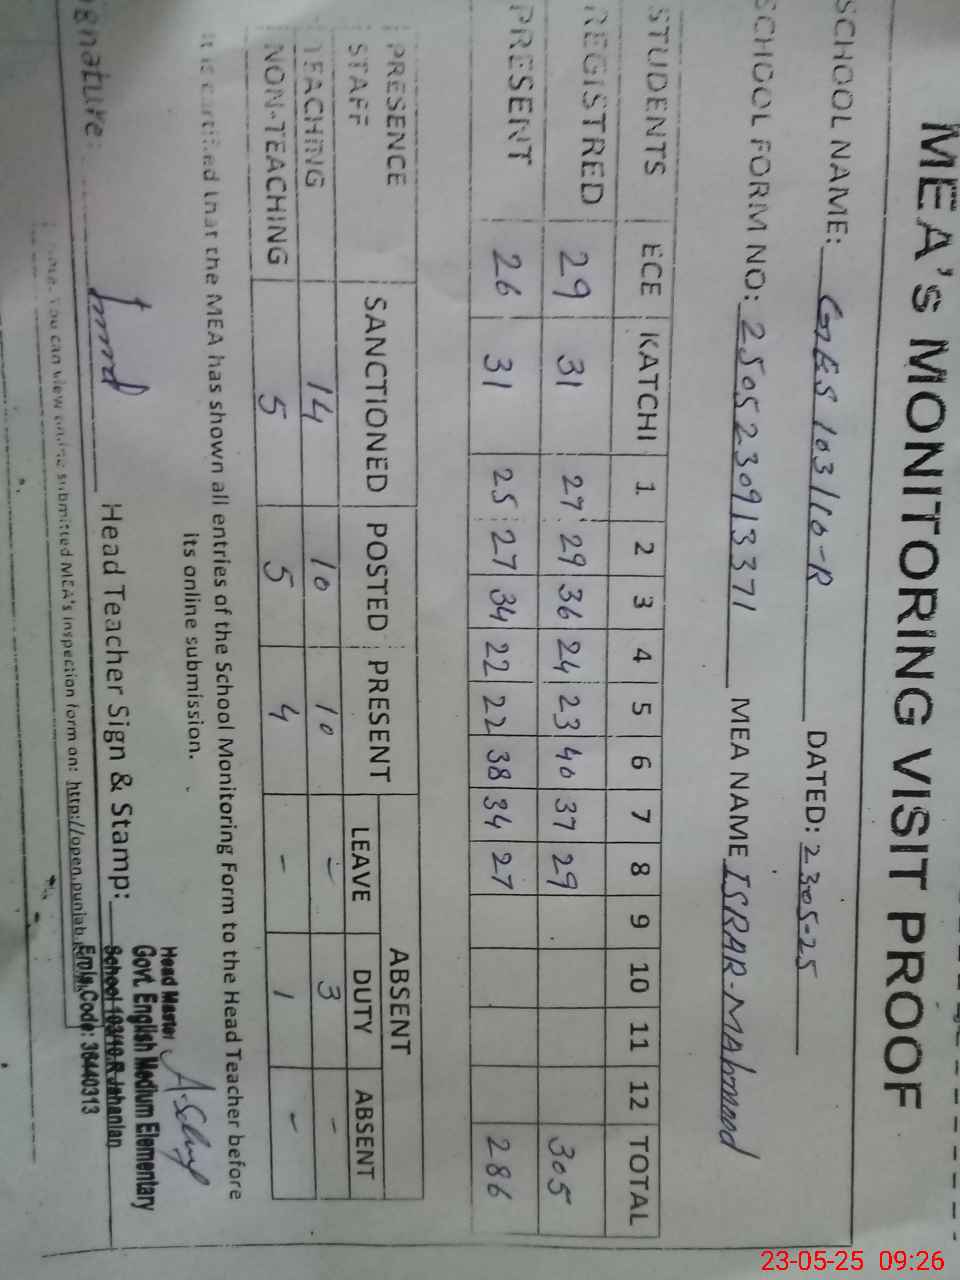 MEA'S MONITORING VISIT PROOF
SCHOOL NAME: GES 103/10-R DATED: 2305-25
SCHOOL FORM NO: 2505230913371 MEA NAME ISRAR-MAhmood
STUDENTS ECE KATCHI 1 2 3 4 5 6 7 8 9 10 11 12 TOTAL
REGISTRED 29 31 27 29 36 24 23 40 37 29 305
PRESENT 26 31 25 27 34 22 22 38 34 27 286
PRESENCE STAFF SANCTIONED POSTED PRESENT ABSENT
LEAVE DUTY ABSENT
TEACHING 14 10 10 - 3 -
NON-TEACHING 5 5 4 - 1 -
It is certified that the MEA has shown all entries of the School Monitoring Form to the Head Teacher before
its online submission.
Signature: Head Teacher Sign & Stamp:
Head Master
Govt. English Medium Elementary
School 103/10.R Jahanian
Emis Code: 36440313
You can view online submitted MEA's inspection form on: http://open.punjab
23-05-25 09:26